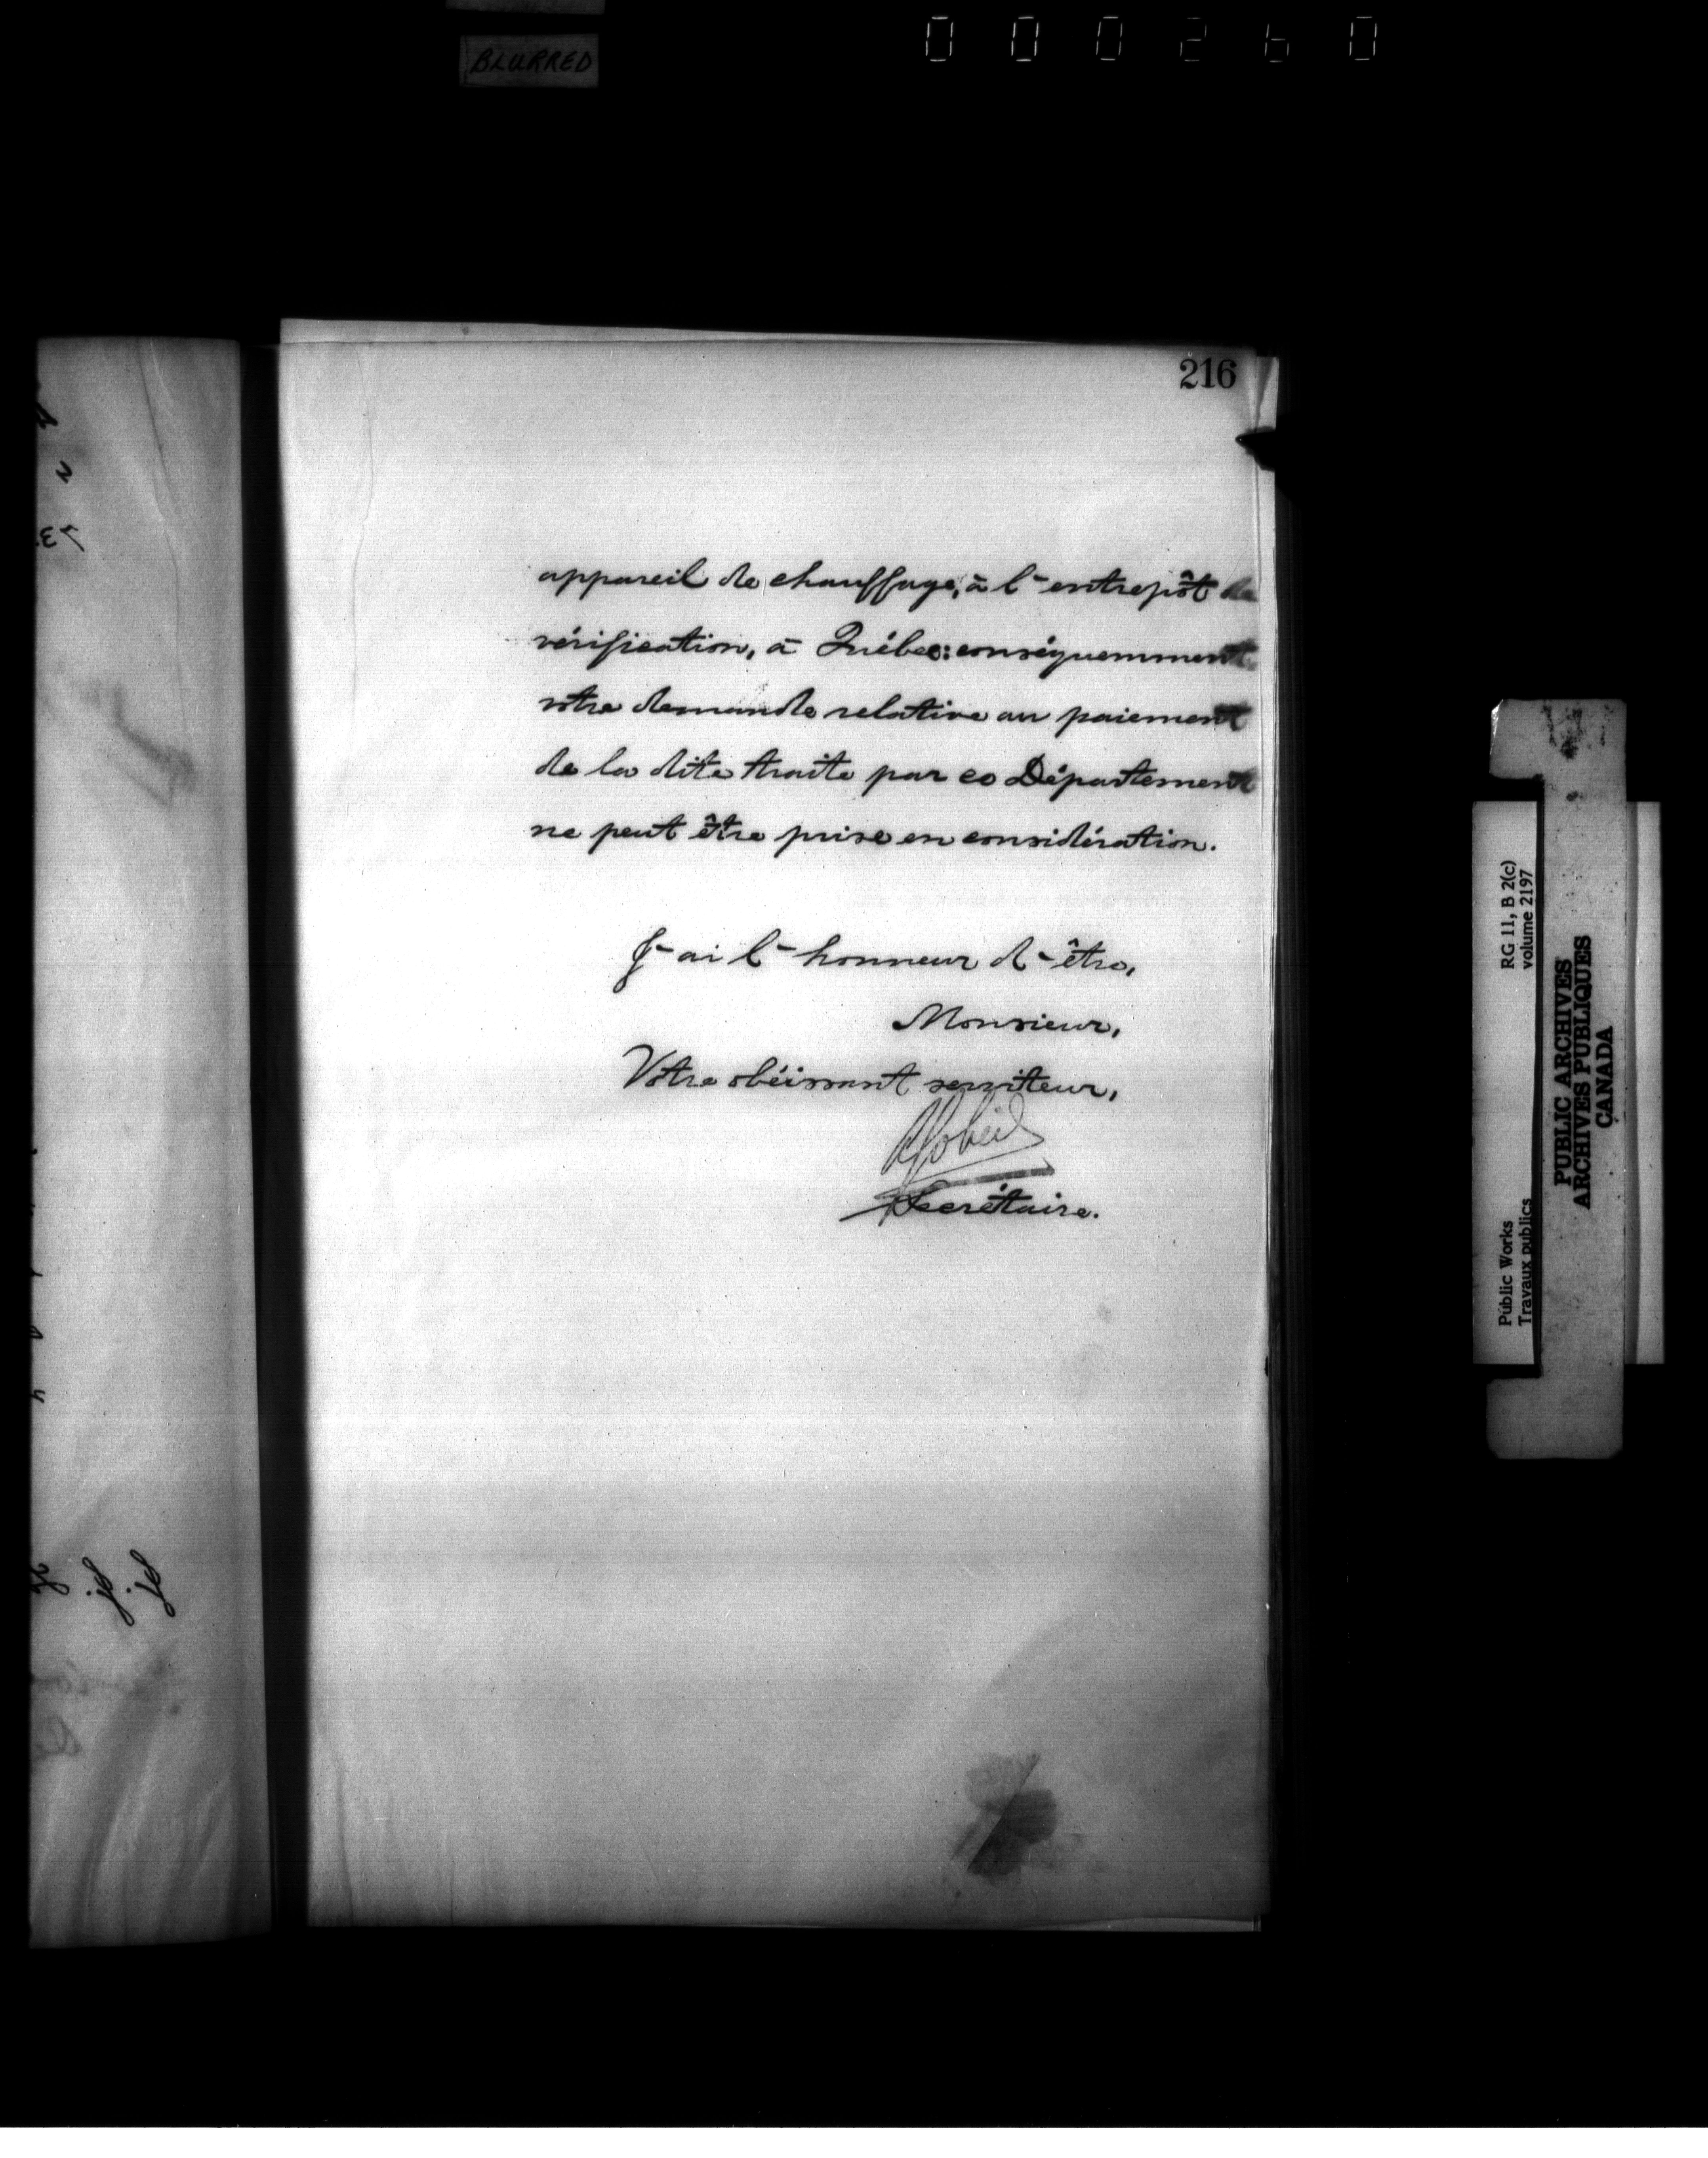 BLURRED
000260
216
appareil de chauffage, à l'entrepôt de
vérification, à Québec: conséquemment
votre demande relative au paiement
de la dite traite par ce Département
ne peut être prise en considération.
J'ai l'honneur d'être,
Monsieur,
Votre obéissant serviteur,
AGobeil
Secrétaire.
Public Works
Travaux publics
RG 11, B 2(c)
volume 2197
PUBLIC ARCHIVES
ARCHIVES PUBLIQUES
CANADA